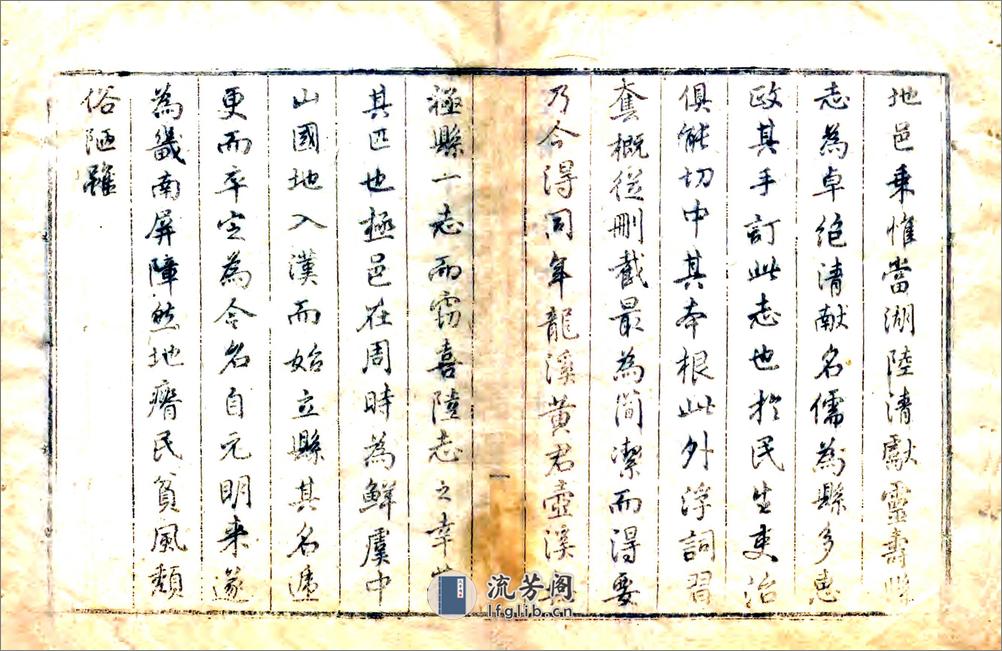 地邑乗惟當湖陸清獻靈壽
志為卓絶清献名儒為縣多惠
政其手訂此志也於民生吏治
俱能切中其本根此外浮詞習
套概從刪截最為簡潔而得要
乃今得同年龍溪黄君壺溪
極縣一志而竊喜陸志之幸
其匹也極邑在周時為鮮虞中
山國地入漢而始立縣其名遞
更而卒定為今名自元明来遂
為畿南屏障然地瘠民貧風頽
俗陋雖
一
流芳阁
lfglib.cn